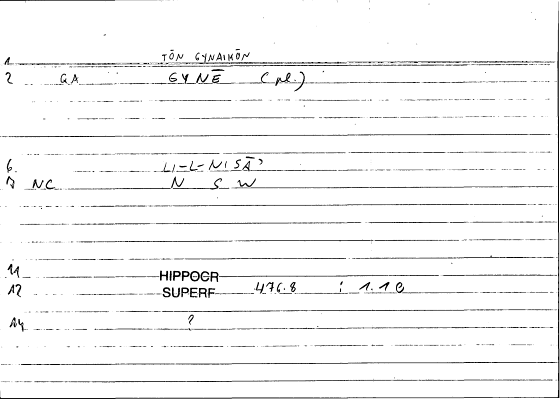 1 TŌN GYNAIKŌN
2 GA GYNĒ (pl.)
6. LI-L-NISĀʾ
7 NC N S W
11 HIPPOCR
12 SUPERF 476.8 : 1.10
14 ?